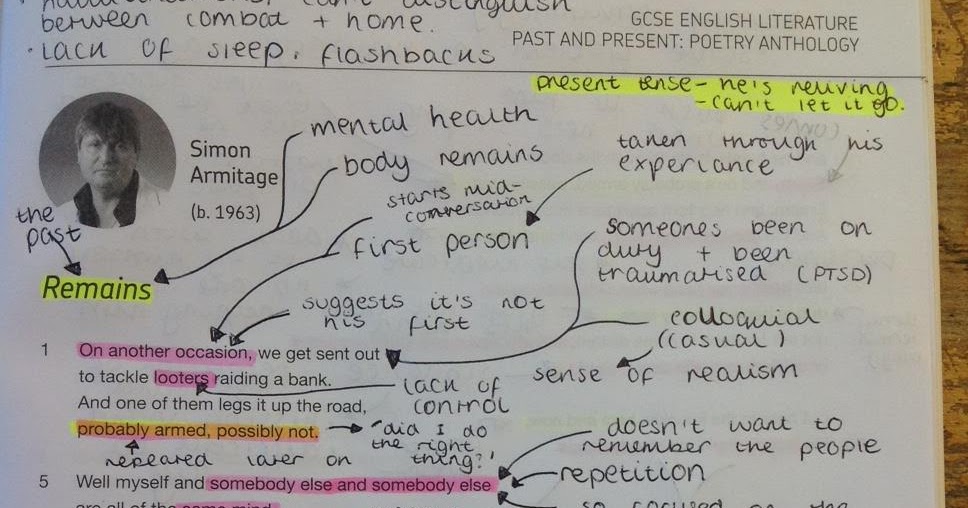 can't distinguish
between combat + home.
· Lack of sleep. flashbacks
GCSE ENGLISH LITERATURE
PAST AND PRESENT: POETRY ANTHOLOGY
present tense - he's reliving
- can't let it go.
mental health
body remains
taken through his
experiance
Simon
Armitage
(b. 1963)
starts mid-
conversation
first person
the
past
someones been on
duty + been
traumatised (PTSD)
Remains
suggests it's not
his first
colloquial
(casual)
sense of realism
1 On another occasion, we get sent out
to tackle looters raiding a bank.
lack of
control
And one of them legs it up the road,
probably armed, possibly not.
'did I do
the right
thing?'
repeated later on
doesn't want to
remember the people
repetition
5 Well myself and somebody else and somebody else
are all of the same mind
so focused on the